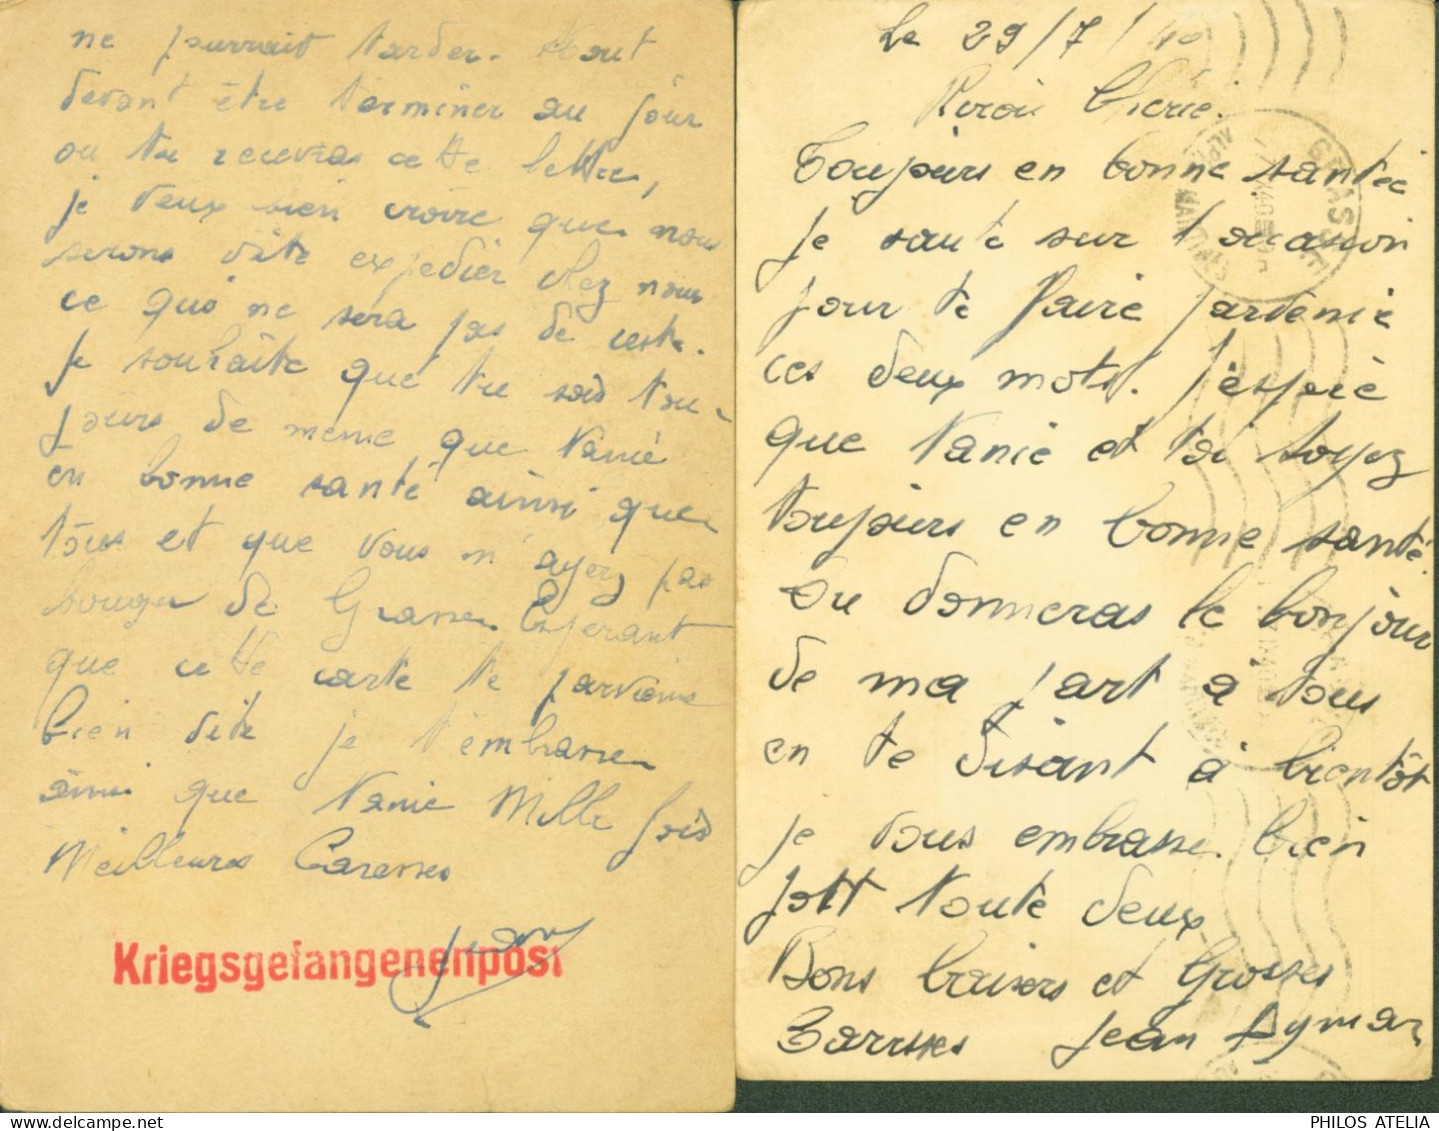 ne pourrait tarder. Tout
devant être terminer au jour
ou tu recevras cette lettre,
je veux bien croire que nous
serons vite expedier chez nous
ce qui ne sera pas de reste.
Je souhaite que tu sois tou-
jours de meme que Nanie
en bonne santé ainsi que
tous et que vous n'ayez pas
bouger de Grasse. Esperant
que cette carte te parvienne
bien vite je t'embrasse
ainsi que Nanie Mille fois
Meilleures Caresses
Jean
Kriegsgefangenenpost
Le 29/7/40
Cherie.
Toujours en bonne santée
je saute sur l'occasion
pour te faire parvenir
ces deux mots. J'espére
que Nanie et toi soyez
toujours en bonne santé.
Tu donneras le bonjour
de ma part a tous
en te disant à bientôt
je vous embrasse bien
fort toute deux
Bons baisers et Grosses
Caresses Jean Aymar
GRASSE
ALPES MARITIMES
PHILOS ATELIA